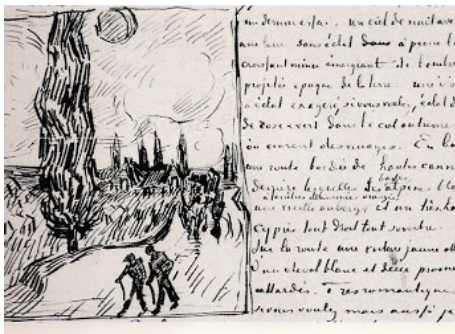 un dernier essai – un ciel de nuit avec
une lune sans éclat dans à peine le
croissant mince émergeant de l'ombre
projetée opaque de la terre – une
à éclat exagéré, si vous voulez, éclat d
de rose & vert dans le ciel outremer
où courent des nuages. En ba
une route bordée de hautes cann
derrière lesquelles les basses alpines ble
une vieille auberge à fenêtres illuminées orangées et un très ha
cyprès tout droit tout sombre.
Sur la route une voiture jaune att
d'un cheval blanc et deux prome
attardés. Très romantique
si vous voulez mais aussi je